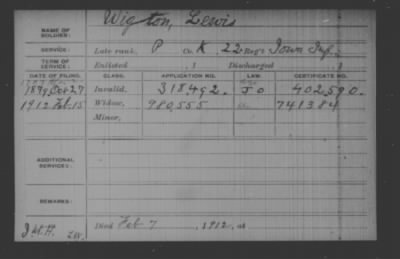 Wigton, Lewis
NAME OF SOLDIER:
SERVICE: Late rank, P Co. K, 22 Reg't Iowa Inf.
TERM OF SERVICE: Enlisted , 1 Discharged , 1
DATE OF FILING. CLASS. APPLICATION NO. LAW. CERTIFICATE NO.
27 Invalid, 318492. 402,590.
1912 Feb. 15 Widow, 980,555 741384
Minor,
ADDITIONAL SERVICES:
REMARKS:
Died Feb 7 , 1912, at